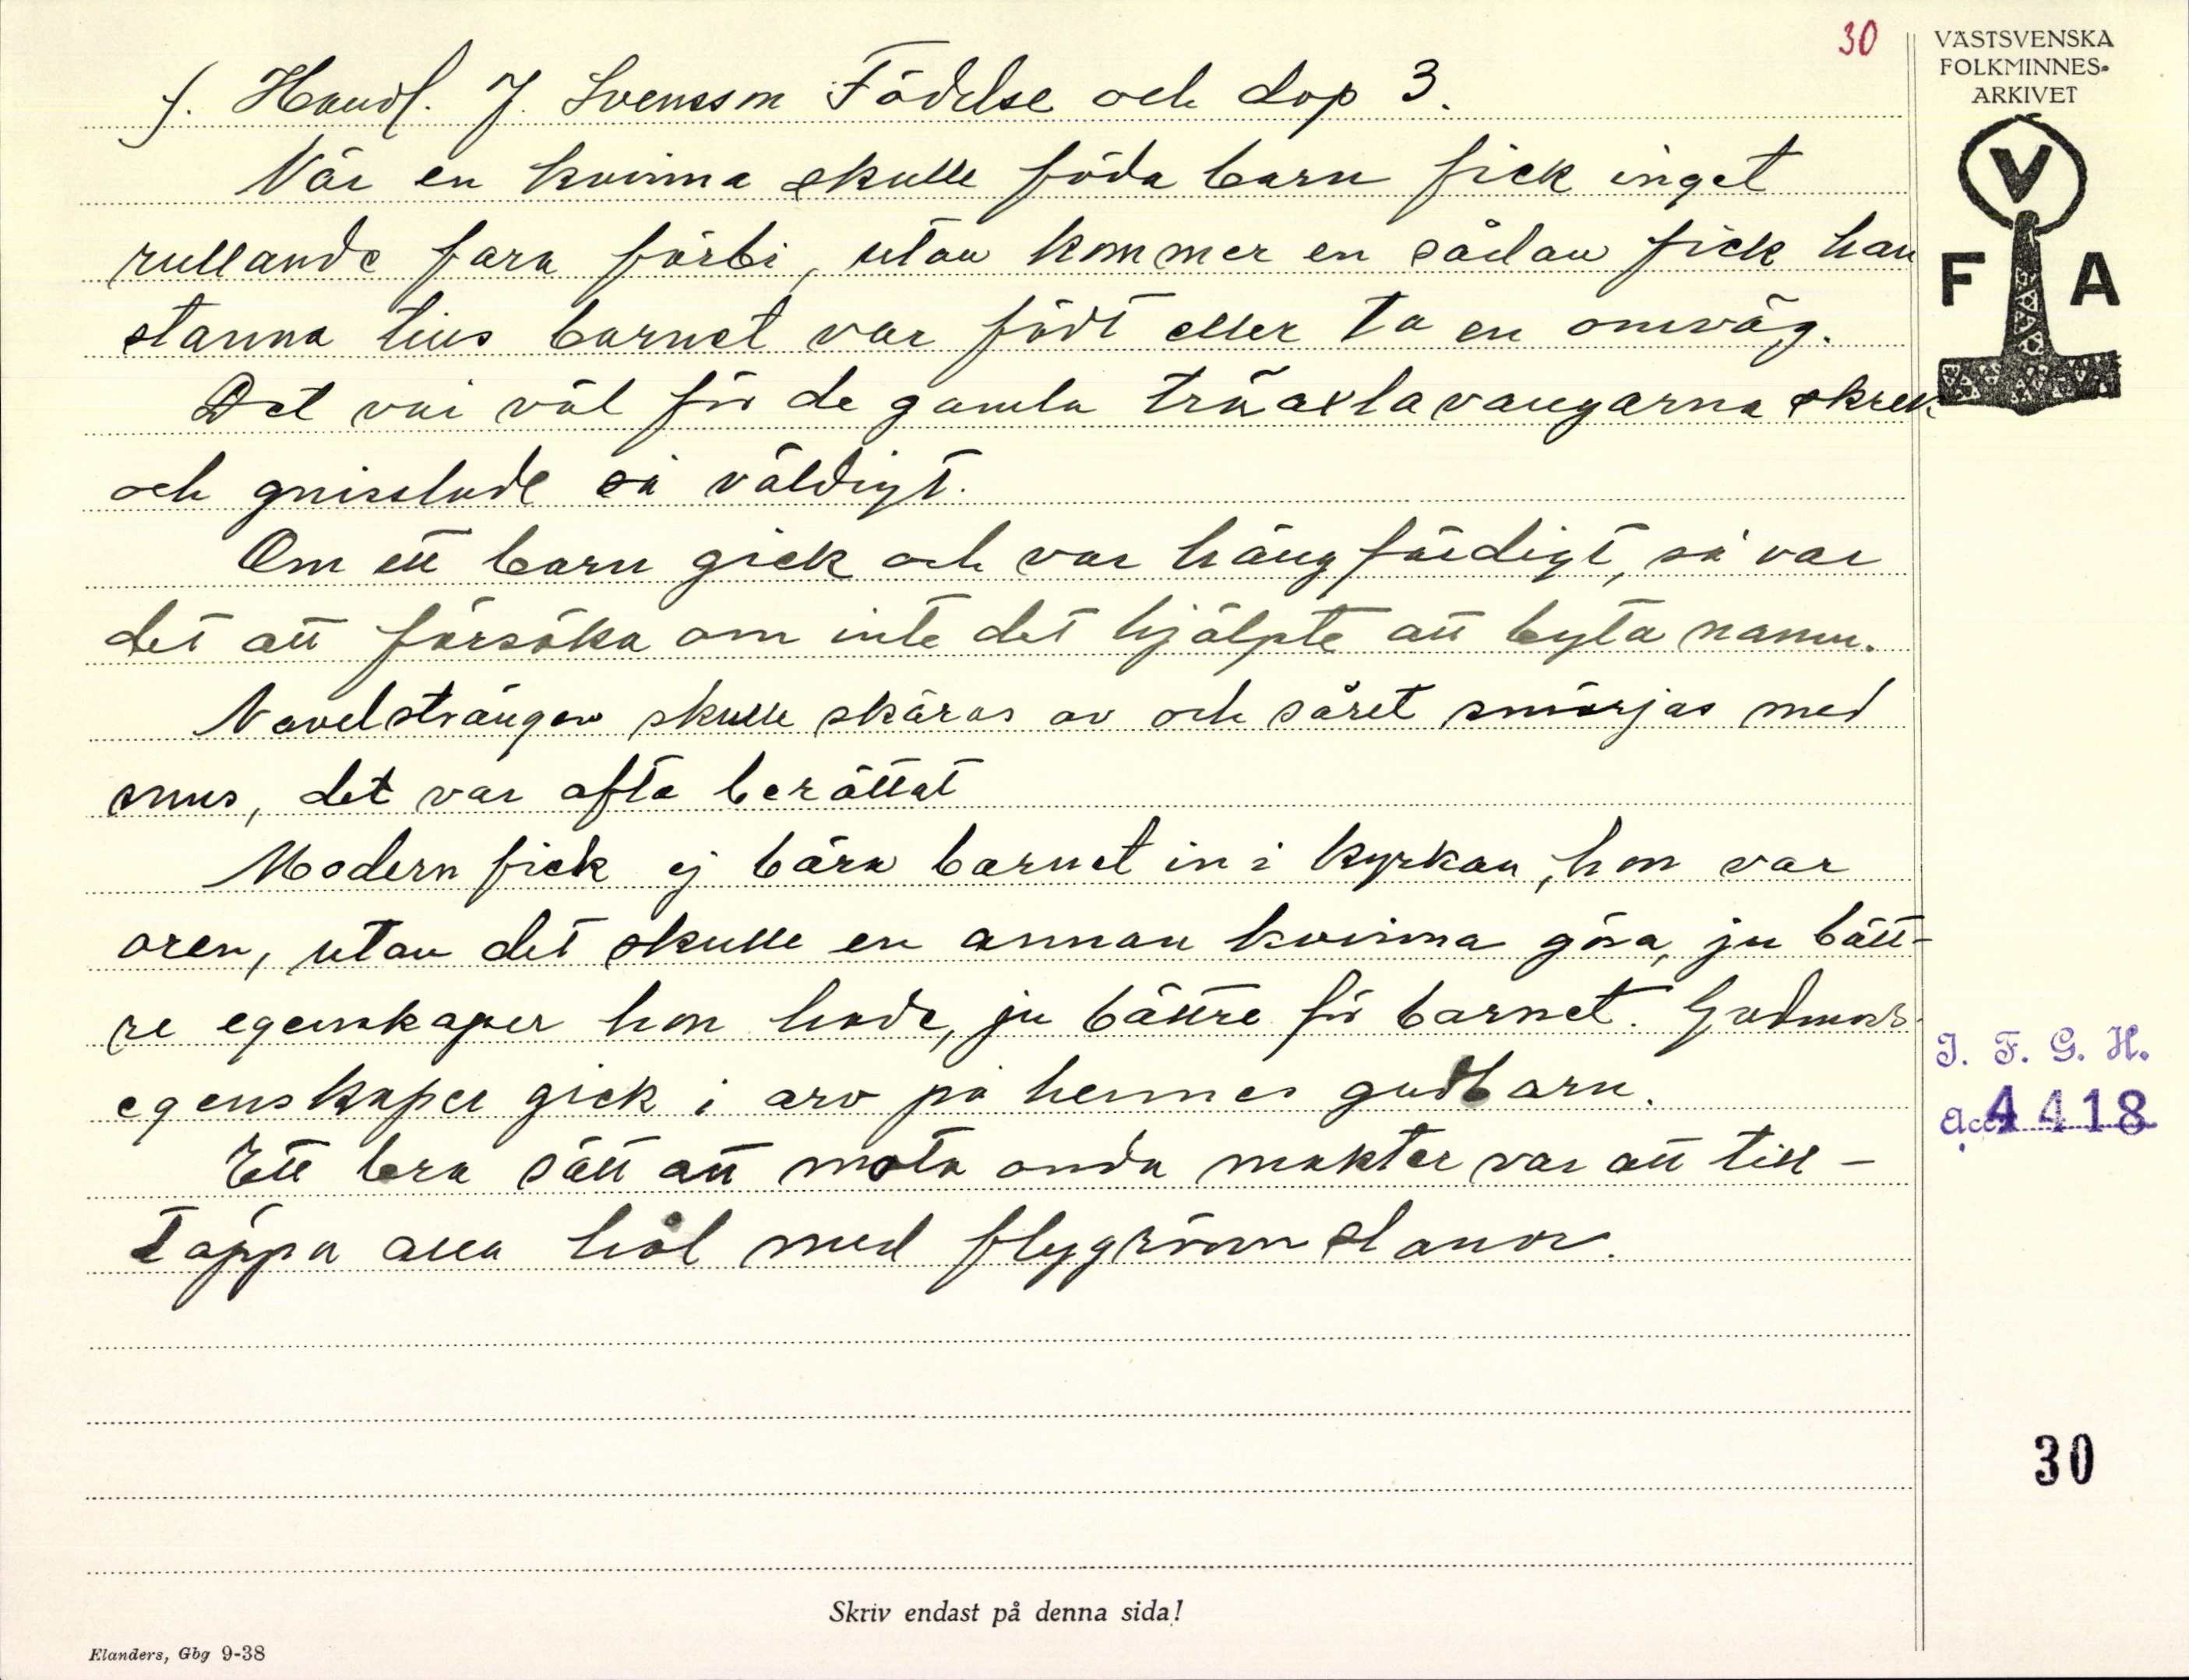 30
VÄSTSVENSKA
FOLKMINNES-
ARKIVET
V
F A
f. Handl. J. Svensson Födelse och dop 3.
När en kvinna skulle föda barn fick inget
rullande fara förbi, utan kommer en sådan fick han
stanna tills barnet var födt eller ta en omväg.
Det var väl för de gamla träaxlavangarna skrek
och gnisslade så väldigt.
Om ett barn gick och var hängfärdigt, så var
det att försöka om inte det hjälpte att byta namn.
Navelsträngen skulle skäras av och såret smörjas med
snus, det var ofta berättat
Modern fick ej bära barnet in i kyrkan, hon var
oren, utan det skulle en annan kvinna göra, ju bätt-
re egenskaper hon hade, ju bättre för barnet. Gudmors
egenskaper gick i arv på hennes gudbarn.
Ett bra sätt att mota onda makter var att till-
täppa alla hål med flygrönnslanor.
I. F. G. H.
Acc. 4418
30
Skriv endast på denna sida!
Elanders, Gbg 9-38